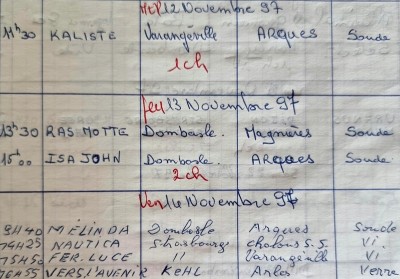 Mer 12 Novembre 97
11h30 KALISTE Varangéville ARques Soude
1ch
Jeu 13 Novembre 97
13h30 RAS MOTTE Dombasle. Magnières Soude
15h00 ISA JOHN Dombasle. ARques Soude
2ch
Ven 14 Novembre 97
9H40 MÉLINDA Dombasle Arques Soude
14H25 NAUTICA Strasbourg Chalons S.S. Vi.
15H50 FER. LUCE " Varangéville Vi
16H55 VERS L'AVENIR KEHL Arles Verre